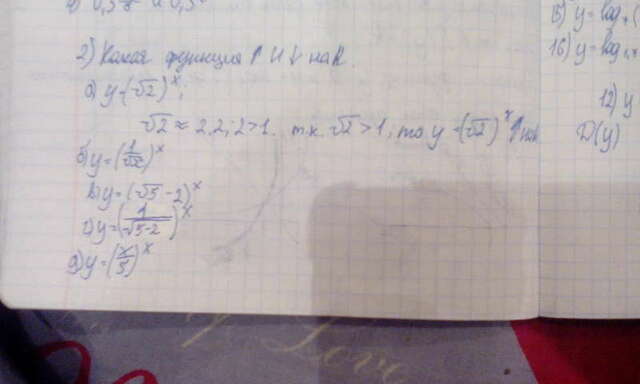 2) Какая функция ↑ и ↓ на R.
а) y=(√2)^x;
√2 ≈ 2,2; 2>1. т.к. √2 >1, то y=(√2)^x ↑ на
б) y=(1/√2)^x
в) y=(√5-2)^x
г) y=(1/√5-2)^x
д) y=(x/3)^x
15) y=log
16) y=log
12) y
D(y)